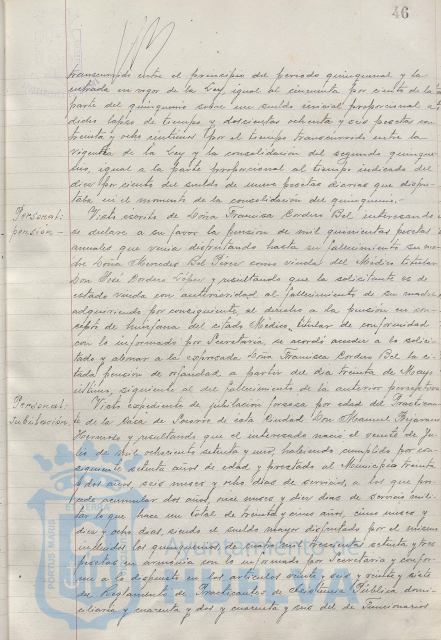 46
transcurrido entre el principio del periodo quinquenal y la
entrada en vigor de la Ley, igual al cincuenta por ciento de la
parte del quinquenio sobre un sueldo inicial proporcional a
dicho lapso de tiempo y doscientas ochenta y seis pesetas con
treinta y ocho céntimos por el tiempo transcurrido entre la
vigencia de la Ley y la consolidación del segundo quinque-
nio, igual a la parte proporcional al tiempo indicado del
diez por ciento del sueldo de nueve pesetas diarias que disfru-
taba en el momento de la consolidación del quinquenio.
Personal: Visto escrito de Doña Francisca Cordero Bel interesando
pensión- se declare a su favor la pensión de mil quinientas pesetas
anuales que venía disfrutando hasta su fallecimiento su ma-
dre Doña Mercedes Bel Pérez como viuda del Médico titular
Don José Cordero López y resultando que la solicitante es de
estado viuda con anterioridad al fallecimiento de su madre
adquiriendo por consiguiente, el derecho a la pensión en con-
cepto de huérfana del citado Médico titular de conformidad
con lo informado por Secretaría se acordó acceder a lo solici-
tado y abonar a la expresada Doña Francisca Cordero Bel la ci-
tada pensión de orfandad a partir del día treinta de Mayo
último, siguiente al del fallecimiento de la anterior perceptora
Personal: Visto expediente de jubilación forzosa por edad del Practican-
Jubilación: te de la Casa de Socorro de esta Ciudad Don Manuel Bejarano
y resultando que el interesado nació el veinte de Ju-
de mil ochocientos setenta y uno, habiendo cumplido por con-
siguiente setenta años de edad y prestado al Municipio treinta
y dos años, seis meses y ocho días de servicios, a los que pro-
cede acumular dos años, once meses y diez días de servicio mili-
tar lo que hace un total de treinta y cinco años, cinco meses y
diez y ocho días, siendo el sueldo mayor disfrutado por el mismo
incluidos los quinquenios, de cuatro mil setenta y tres
pesetas en armonía con lo informado por Secretaría y confor-
me a lo dispuesto en los artículos veinte y seis y veinte y siete
del Reglamento de Practicantes de Asistencia Pública domi-
ciliaria y cuarenta y dos y cuarenta y seis del de Funcionarios
Ayuntamiento de
HUELVA
PORTUS MARIS